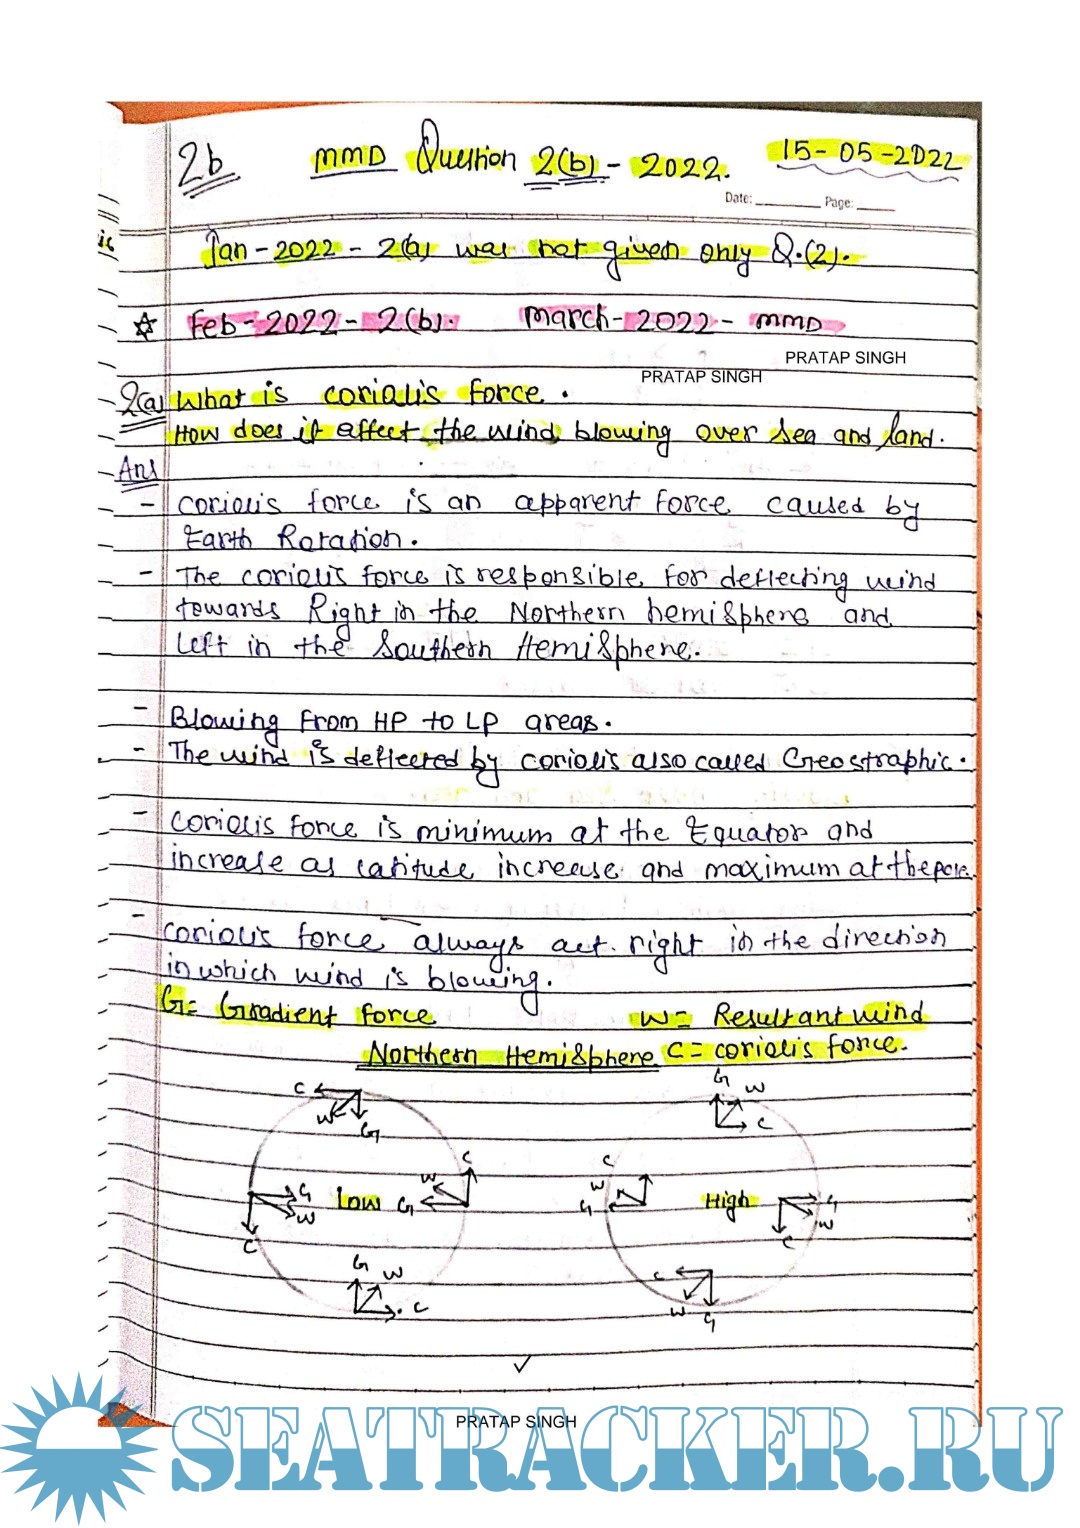 2b MMD Question 2(b) - 2022. 15-05-2022
Date: Page:
ic
Jan-2022 - 2(a) was not given only Q.(2).
☆ Feb-2022-2(b). March-2022- MMD
PRATAP SINGH
PRATAP SINGH
2(a) What is coriolis force.
How does it affect the wind blowing over sea and land.
Ans
- coriolis force is an apparent force caused by
Earth Rotation.
- The coriolis force is responsible for deflecting wind
towards Right in the Northern hemisphere and
left in the Southern Hemisphere.
- Blowing from HP to LP areas.
- The wind is deflected by coriolis also called Geostraphic.
- coriolis force is minimum at the Equator and
increase as latitude increase and maximum at the pole.
- coriolis force always act right in the direction
in which wind is blowing.
G= Gradient force W= Resultant wind
Northern Hemisphere C= coriolis force.
C W G G W C
G W C Low G W C C W G High G W C
G W C C W G
✓
PRATAP SINGH
SEATRACKER.RU